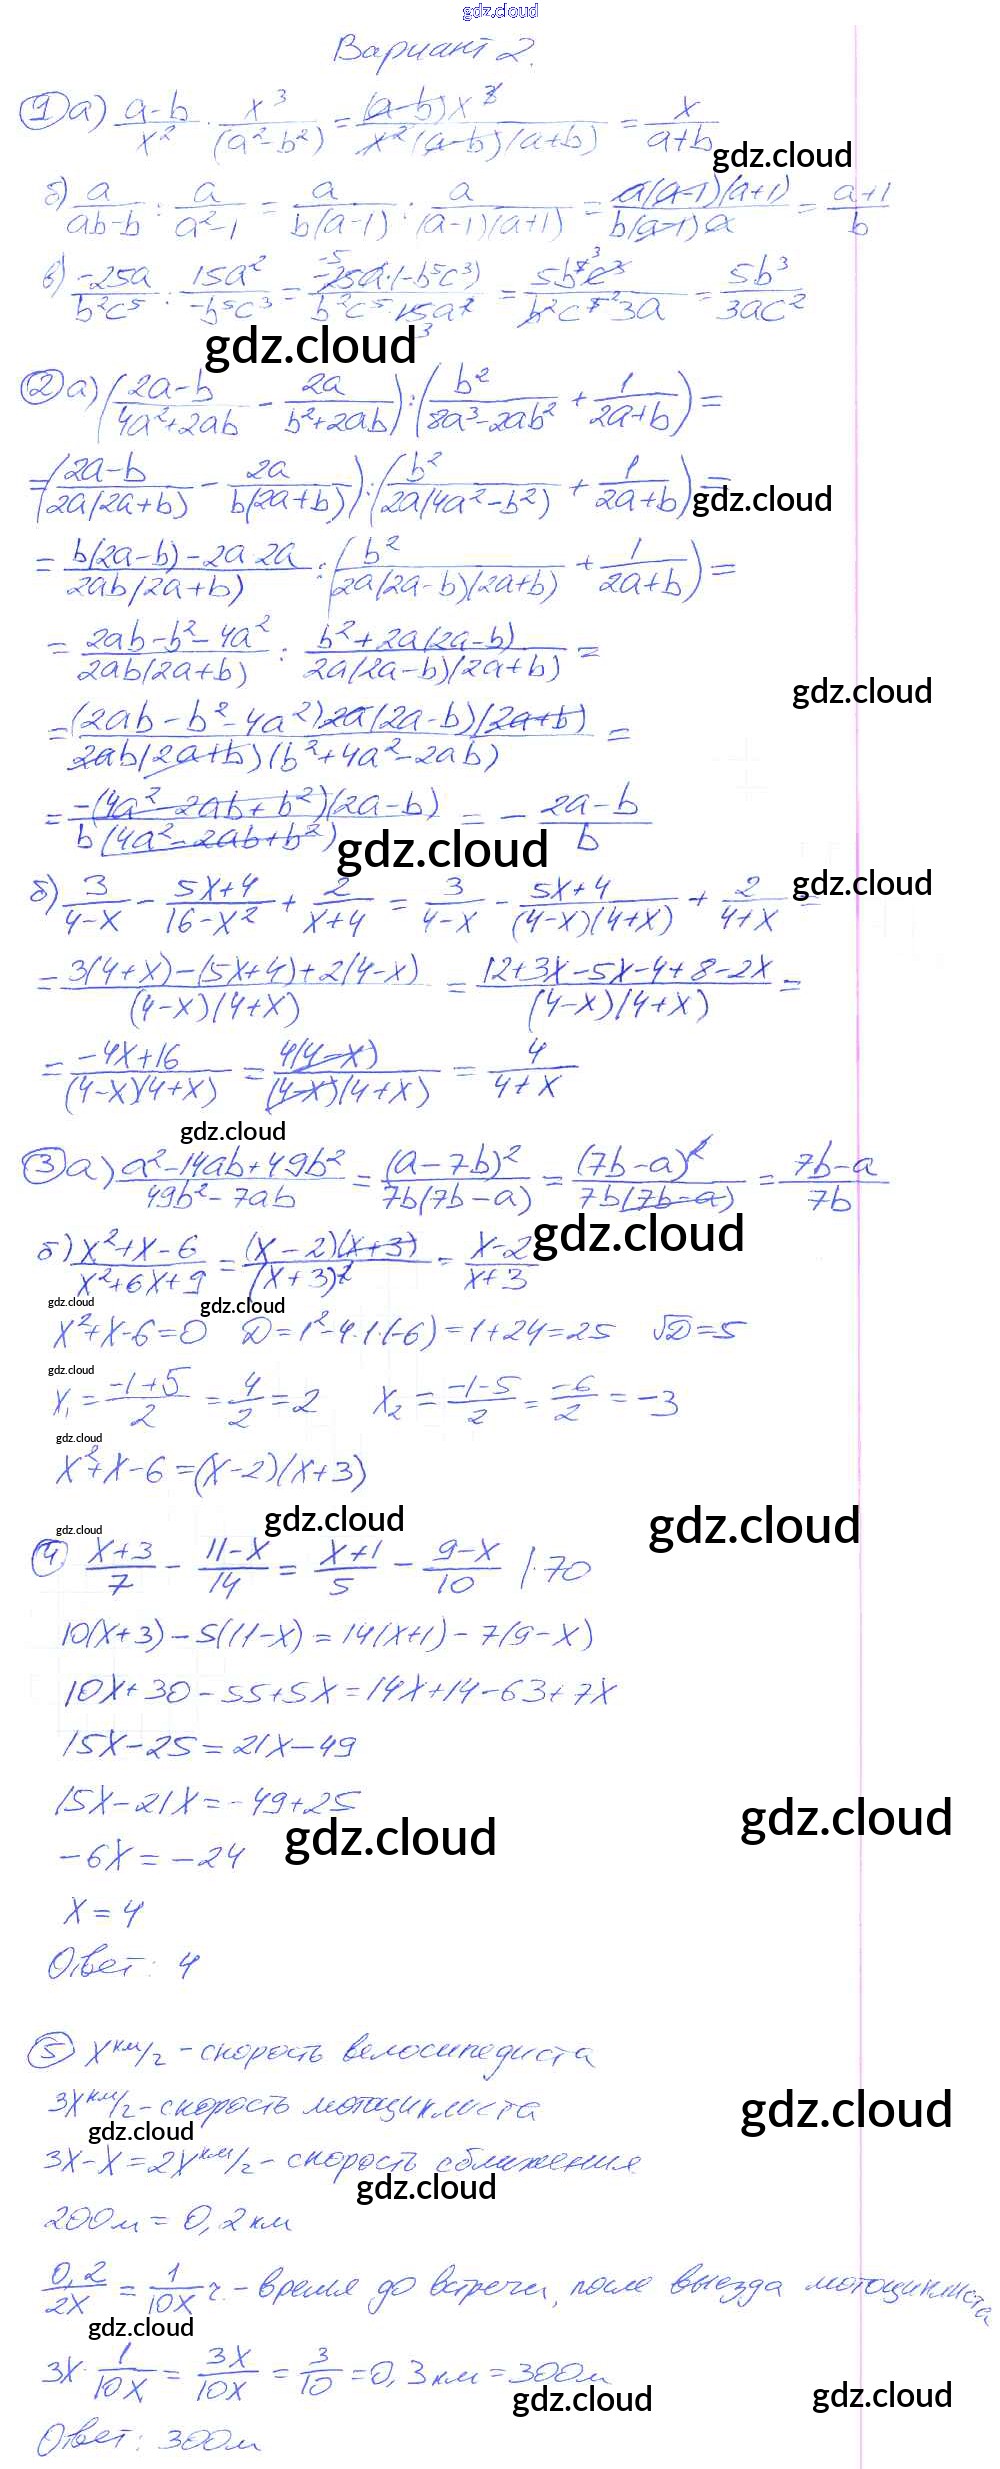 gdz.cloud
Вариант 2.
① а) (a-b)/x² · x³/(a²-b²) = (a-b)x³/(x²(a-b)(a+b)) = x/(a+b)
gdz.cloud
б) a/(ab-b) : a/(a²-1) = a/(b(a-1)) : a/((a-1)(a+1)) = a(a-1)(a+1)/(b(a-1)a) = (a+1)/b
в) -25a/(b²c⁵) : 15a²/(-b⁵c³) = -25a·(-b⁵c³)/(b²c⁵·15a²) = 5b⁵c³/(b²c⁵3a) = 5b³/(3ac²)
gdz.cloud
② а) ((2a-b)/(4a²+2ab) - 2a/(b²+2ab)) : (b²/(8a³-2ab²) + 1/(2a+b)) =
= ((2a-b)/(2a(2a+b)) - 2a/(b(2a+b))) : (b²/(2a(4a²-b²)) + 1/(2a+b)) =
gdz.cloud
= (b(2a-b)-2a·2a)/(2ab(2a+b)) : (b²/(2a(2a-b)(2a+b)) + 1/(2a+b)) =
= (2ab-b²-4a²)/(2ab(2a+b)) : (b²+2a(2a-b))/(2a(2a-b)(2a+b)) =
gdz.cloud
= (2ab-b²-4a²)2a(2a-b)(2a+b)/(2ab(2a+b)(b²+4a²-2ab)) =
= -(4a²-2ab+b²)(2a-b)/(b(4a²-2ab+b²)) = - (2a-b)/b
gdz.cloud
gdz.cloud
б) 3/(4-x) - (5x+4)/(16-x²) + 2/(x+4) = 3/(4-x) - (5x+4)/((4-x)(4+x)) + 2/(4+x) =
= (3(4+x)-(5x+4)+2(4-x))/((4-x)(4+x)) = (12+3x-5x-4+8-2x)/((4-x)(4+x)) =
= (-4x+16)/((4-x)(4+x)) = 4(4-x)/((4-x)(4+x)) = 4/(4+x)
gdz.cloud
③ а) (a²-14ab+49b²)/(49b²-7ab) = (a-7b)²/(7b(7b-a)) = (7b-a)²/(7b(7b-a)) = (7b-a)/7b
gdz.cloud
б) (x²+x-6)/(x²+6x+9) = (x-2)(x+3)/(x+3)² = (x-2)/(x+3)
gdz.cloud
gdz.cloud
x²+x-6=0 D=1²-4·1·(-6)=1+24=25 √D=5
gdz.cloud
x₁ = (-1+5)/2 = 4/2 = 2 x₂ = (-1-5)/2 = -6/2 = -3
gdz.cloud
x²+x-6=(x-2)(x+3)
gdz.cloud
gdz.cloud
gdz.cloud
④ (x+3)/7 - (11-x)/14 = (x+1)/5 - (9-x)/10 |·70
10(x+3)-5(11-x)=14(x+1)-7(9-x)
10x+30-55+5x=14x+14-63+7x
15x-25=21x-49
15x-21x=-49+25
gdz.cloud
gdz.cloud
-6x=-24
x=4
Ответ: 4
⑤ x км/ч - скорость велосипедиста
3x км/ч - скорость мотоциклиста
gdz.cloud
gdz.cloud
3x-x=2x км/ч - скорость сближения
gdz.cloud
200м = 0,2 км
0,2/2x = 1/10x ч. - время до встречи, после выезда мотоциклиста
gdz.cloud
3x · 1/10x = 3x/10x = 3/10 = 0,3 км = 300м
gdz.cloud
gdz.cloud
Ответ: 300м